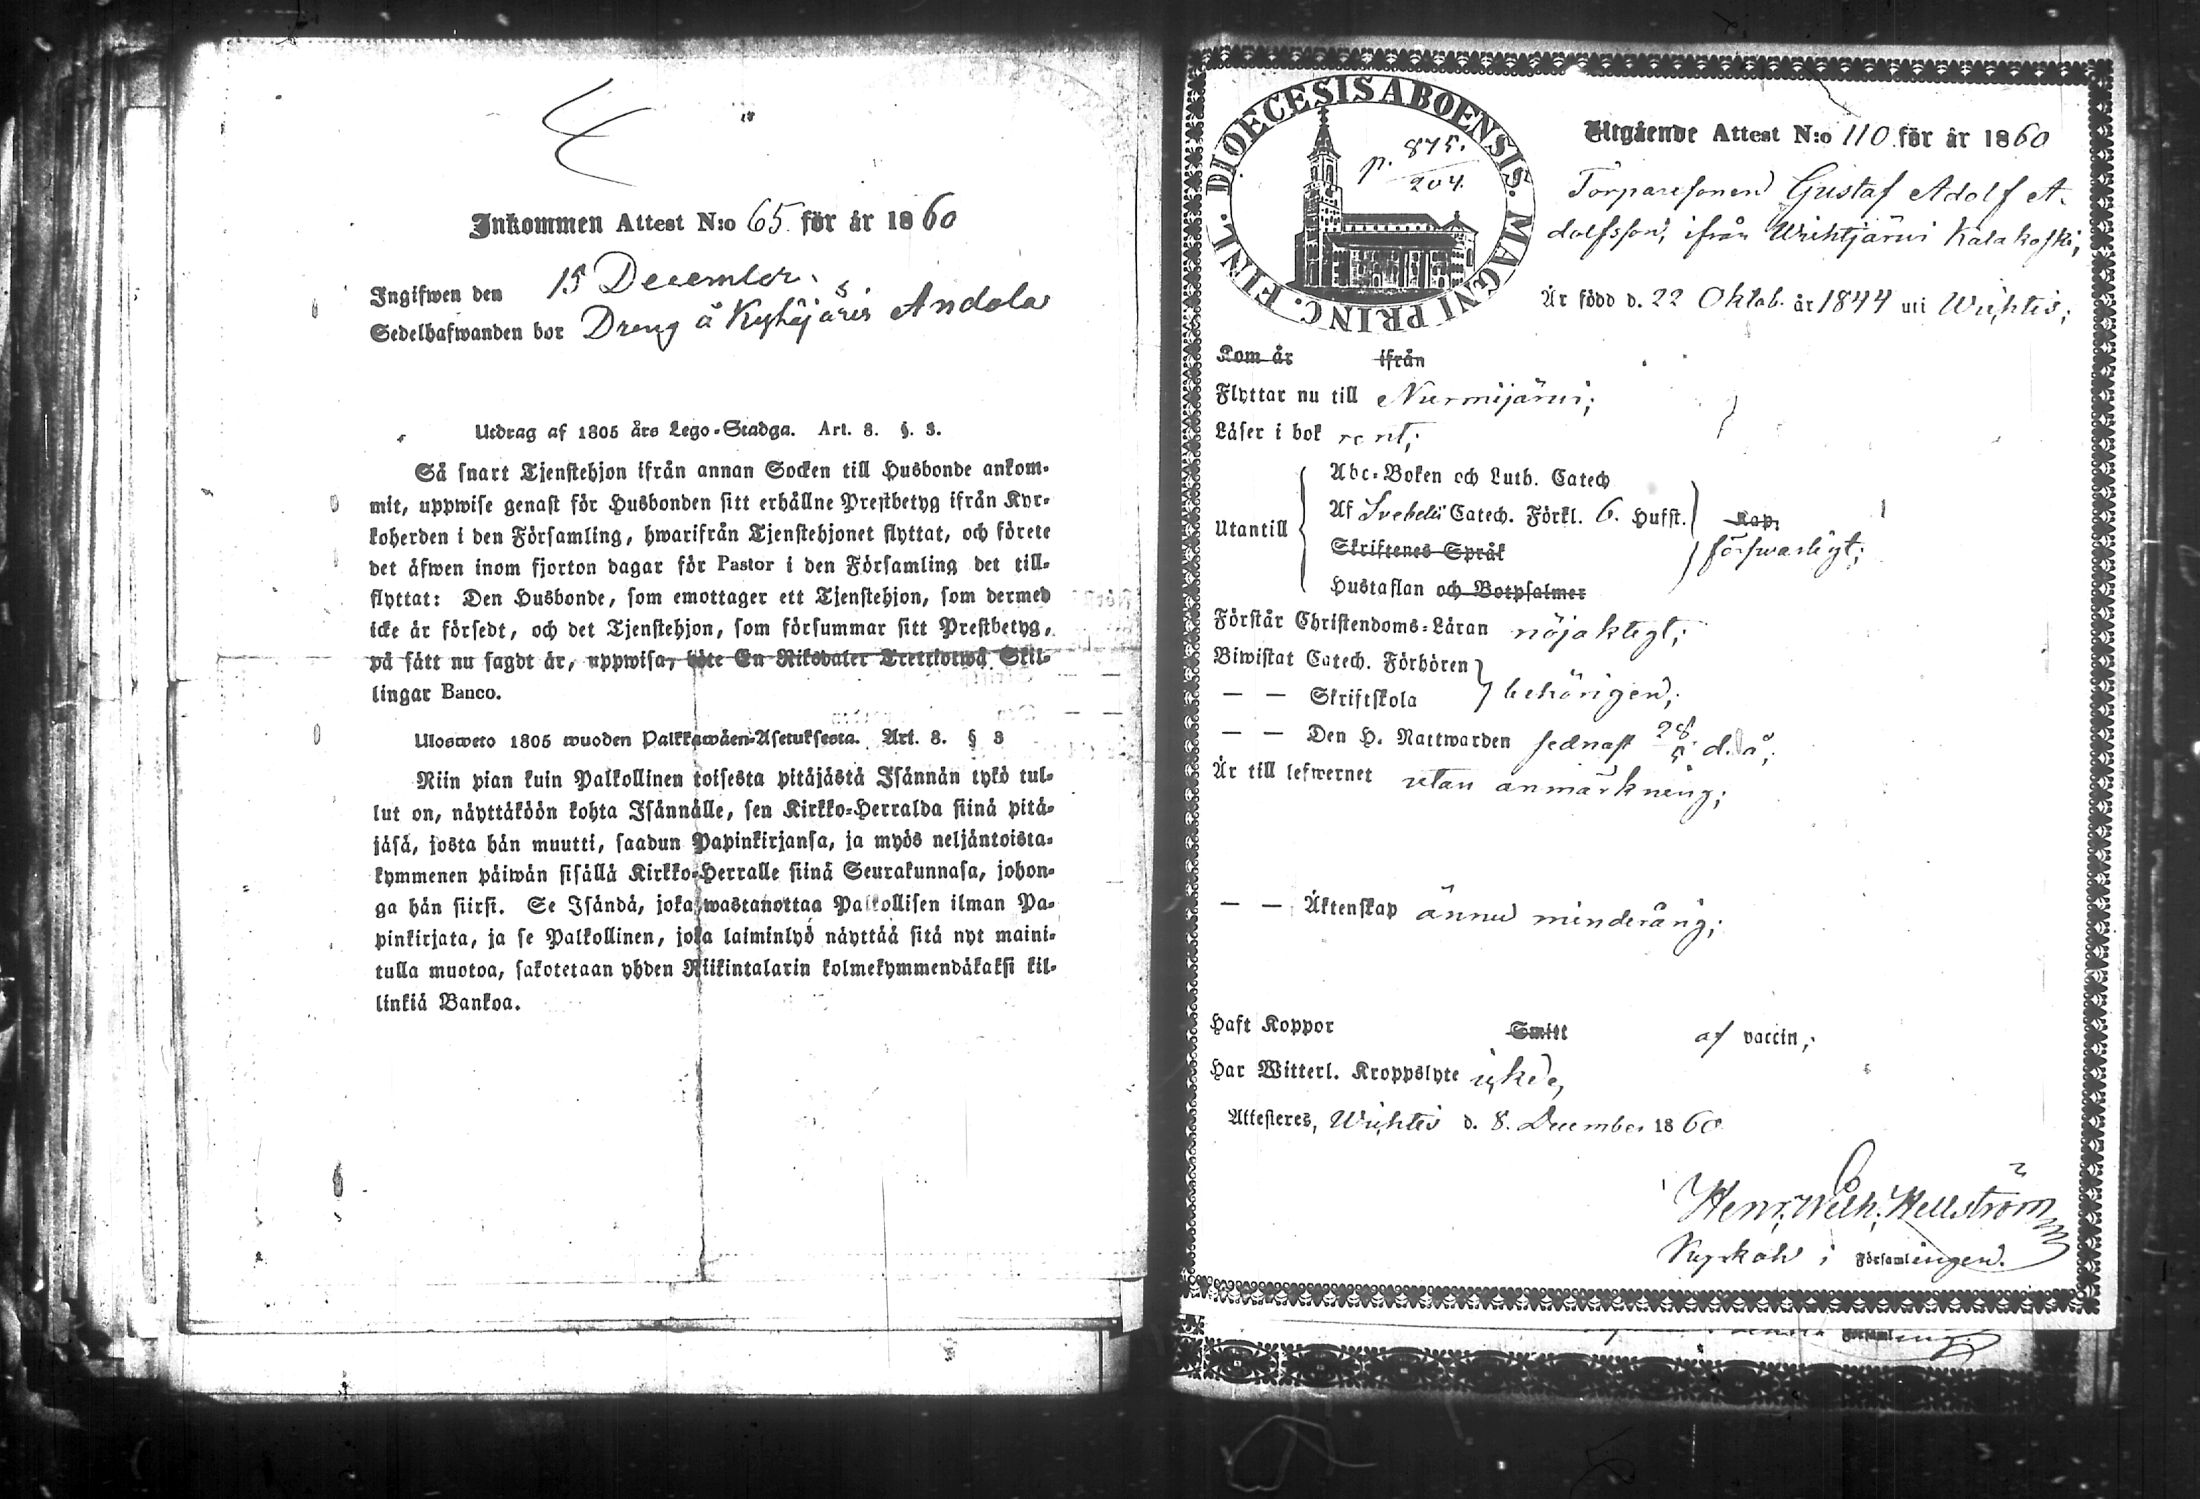 Inkommen Attest N:o 65. för år 1860
Ingifwen den 15 December.
Sedelhafwanden bor Dreng å Kyhäjärvi Andola
Utdrag af 1805 års Lego-Stadga. Art. 8. §. 3.
Så snart Tjenstehjon ifrån annan Socken till Husbonde ankom-
mit, uppwise genast för Husbonden sitt erhållne Prestbetyg ifrån Kyr-
koherden i den Församling, hwarifrån Tjenstehjonet flyttat, och förete
det äfwen inom fjorton dagar för Pastor i den Församling det till-
flyttat: Den Husbonde, som emottager ett Tjenstehjon, som dermed
icke är försedt, och det Tjenstehjon, som försummar sitt Prestbetyg,
på sätt nu sagdt är, uppwisa, böte En Riksdaler Trettiotwå Skil-
lingar Banco.
Ulosweto 1805 wuoden Palkkawäen-Asetuksesta. Art. 8. § 3
Niin pian kuin Palkollinen toisesta pitäjästä Isännän tykö tul-
lut on, näyttäköön kohta Isännälle, sen Kirkko-Herralda siinä pitä-
jäsä, josta hän muutti, saadun Papinkirjansa, ja myös neljäntoista-
kymmenen päiwän sisällä Kirkko-Herralle siinä Seurakunnasa, johon-
ga hän siirsi. Se Isändä, joka wastanottaa Palkollisen ilman Pa-
pinkirjata, ja se Palkollinen, joka laiminlyö näyttää sitä nyt maini-
tulla muotoa, sakotetaan yhden Riikintalarin kolmekymmendäkaksi kil-
linkiä Bankoa.
FINL. DIOECESIS ABOENSIS. MAGNI PRINC.
p. 875.
204.
Utgående Attest N:o 110 för år 1860
Torparesonen Gustaf Adolf A-
dolfsson, ifrån Wichtjärvi Kalakoski,
Är född d. 22 Oktob. år 1844 uti Wichtis;
Kom år ifrån
Flyttar nu till Nurmijärvi;
Läser i bok rent;
Utantill
Abc-Boken och Luth. Catech
Af Svebelii Catech. Förkl. 6. Hufst. Kap.
Skriftenes Språk försvarligt;
Hustaflan och Botpsalmer
Förstår Christendoms-Läran nöjaktigt;
Biwistat Catech. Förhören
— — Skriftskola behörigen;
— — Den H. Nattwarden sednast 28/5 d. å;
Är till lefwernet utan anmärkning;
— — Äktenskap ännu minderårig;
Haft Koppor Smitt af vaccin;
Har Witterl. Kroppslyte icke,
Attesteres, Wichtis d. 8. December 1860
Henr. Wilh. Hellström
Kyrkoh i Församlingen.